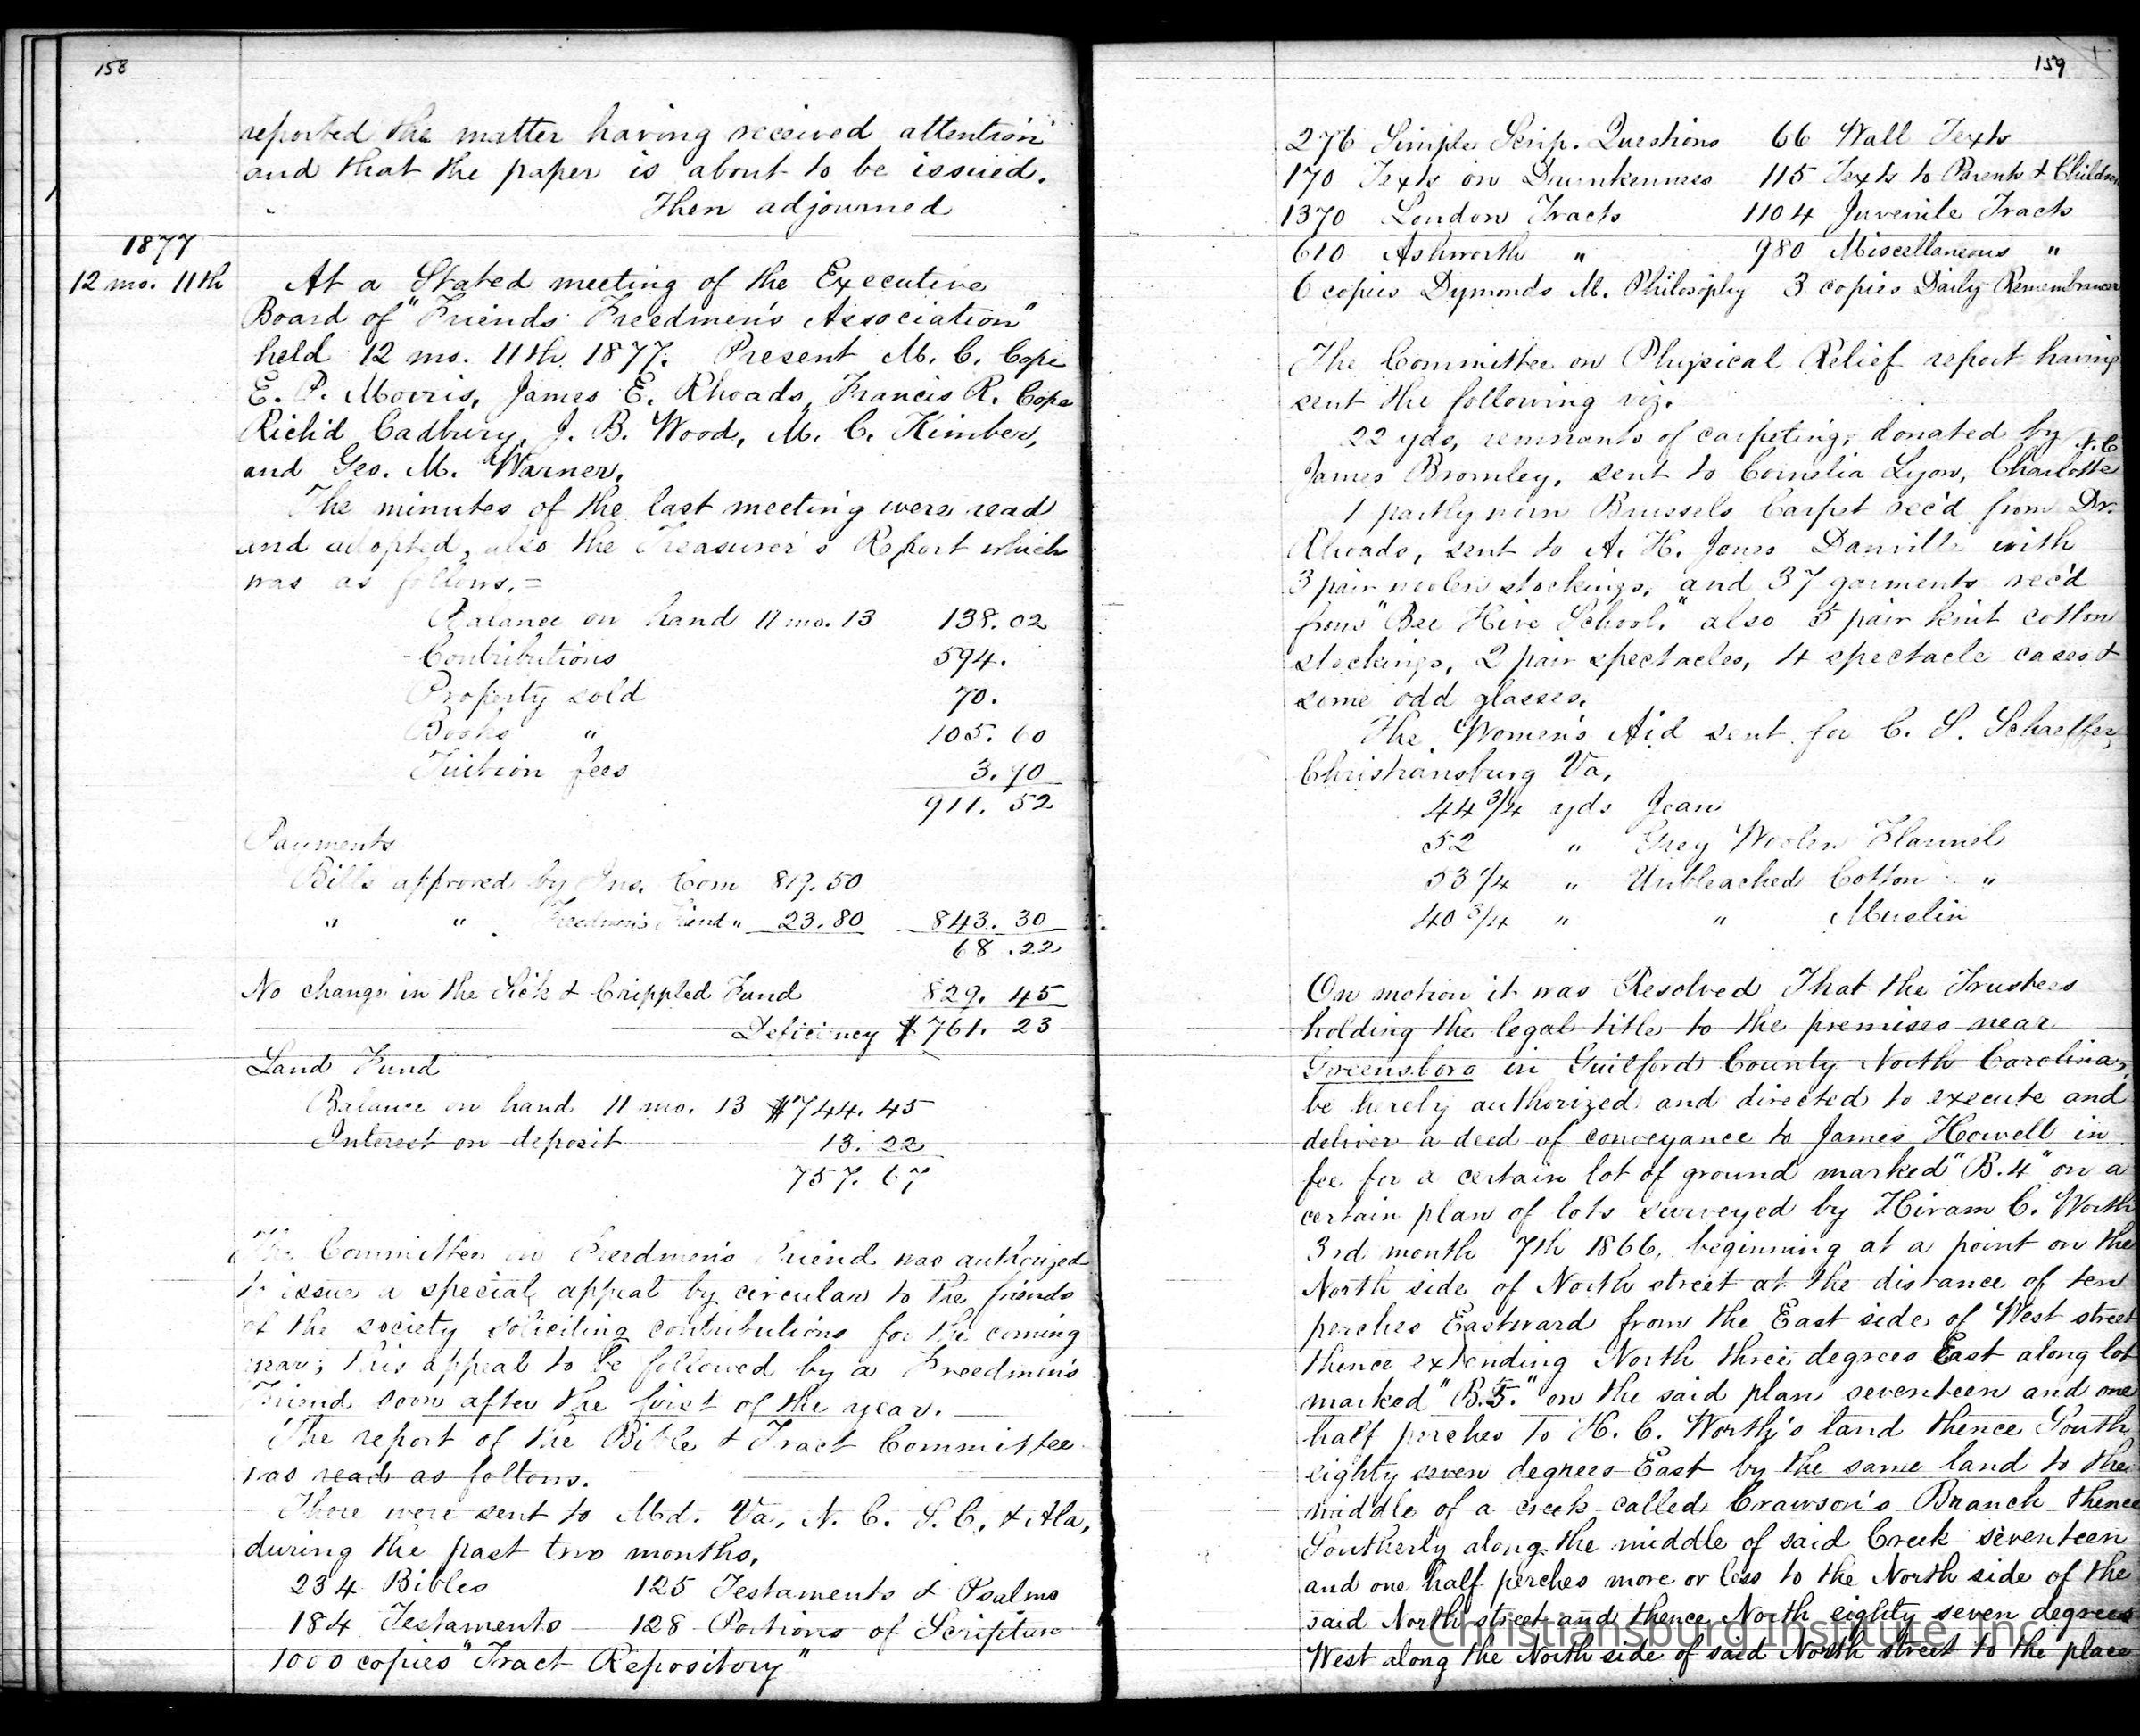 158
reported the matter having received attention
and that the paper is about to be issued.
Then adjourned
1877
12 mo. 11th
At a Stated meeting of the Executive
Board of "Friends Freedmen's Association"
held 12 mo. 11th 1877. Present M. C. Cope
E. P. Morris, James E. Rhoads, Francis R. Cope
Rich'd Cadbury, J. B. Wood, M. C. Kimber,
and Geo. M. Warner.
The minutes of the last meeting were read
and adopted, also the Treasurer's Report which
was as follows. =
Balance on hand 11 mo. 13 138.02
Contributions 594.
Property sold 70.
Books " 105.60
Tuition fees 3.90
911.52
Payments
Bills approved by Ins. Com 819.50
" " Freedmen's Friend " 23.80 843.30
68.22
No change in the Sick & Crippled Fund 829.45
Deficiency $761.23
Land Fund
Balance on hand 11 mo. 13 $744.45
Interest on deposit 13.22
757.67
The Committee on Freedmen's Friend was authorized
to issue a special appeal by circular to the friends
of the society soliciting contributions for the coming
year; this appeal to be followed by a Freedmen's
Friend soon after the first of the year.
The report of the Bible & Tract Committee
was read as follows.
There were sent to Md. Va, N. C. S. C, & Ala,
during the past two months.
234 Bibles 125 Testaments & Psalms
184 Testaments 128 Portions of Scripture
1000 copies "Tract Repository"
159
276 Simple Scrip. Questions 66 Wall Texts
170 Texts on Drunkenness 115 Texts to Parents & Children
1370 London Tracts 1104 Juvenile Tracts
610 Ashworth " 980 Miscellaneous "
6 copies Dymonds M. Philosophy 3 copies Daily Remembrancer
The Committee on Physical Relief report having
sent the following viz.
22 yds, remnants of carpeting, donated by
James Bromley, sent to Cornelia Lyon, Charlotte N.C
1 partly worn Brussels Carpet rec'd from Dr.
Rhoads, sent to A. H. Jones Danville with
3 pair woolen stockings, and 37 garments rec'd
from "Bee Hive School," also 5 pair knit cotton
stockings, 2 pair spectacles, 4 spectacle cases &
some odd glasses.
The Women's Aid sent for C. S. Schaeffer,
Christiansburg Va,
44 3/4 yds Jean
52 " Grey Woolen Flannel
53 1/4 " Unbleached Cotton "
40 3/4 " " Muslin
On motion it was Resolved That the Trustees
holding the legal title to the premises near
Greensboro in Guilford County North Carolina,
be hereby authorized and directed to execute and
deliver a deed of conveyance to James Howell in
fee for a certain lot of ground marked "B.4" on a
certain plan of lots surveyed by Hiram C. Worth
3rd month 7th 1866, beginning at a point on the
North side of North street at the distance of ten
perches Eastward from the East side of West street
thence extending North three degrees East along lot
marked "B.5." on the said plan seventeen and one
half perches to H. C. Worth's land thence South
eighty seven degrees East by the same land to the
middle of a creek called Crawson's Branch thence
Southerly along the middle of said Creek seventeen
and one half perches more or less to the North side of the
said North street and thence North eighty seven degrees
West along the North side of said North street to the place
Christiansburg Institute, Inc.